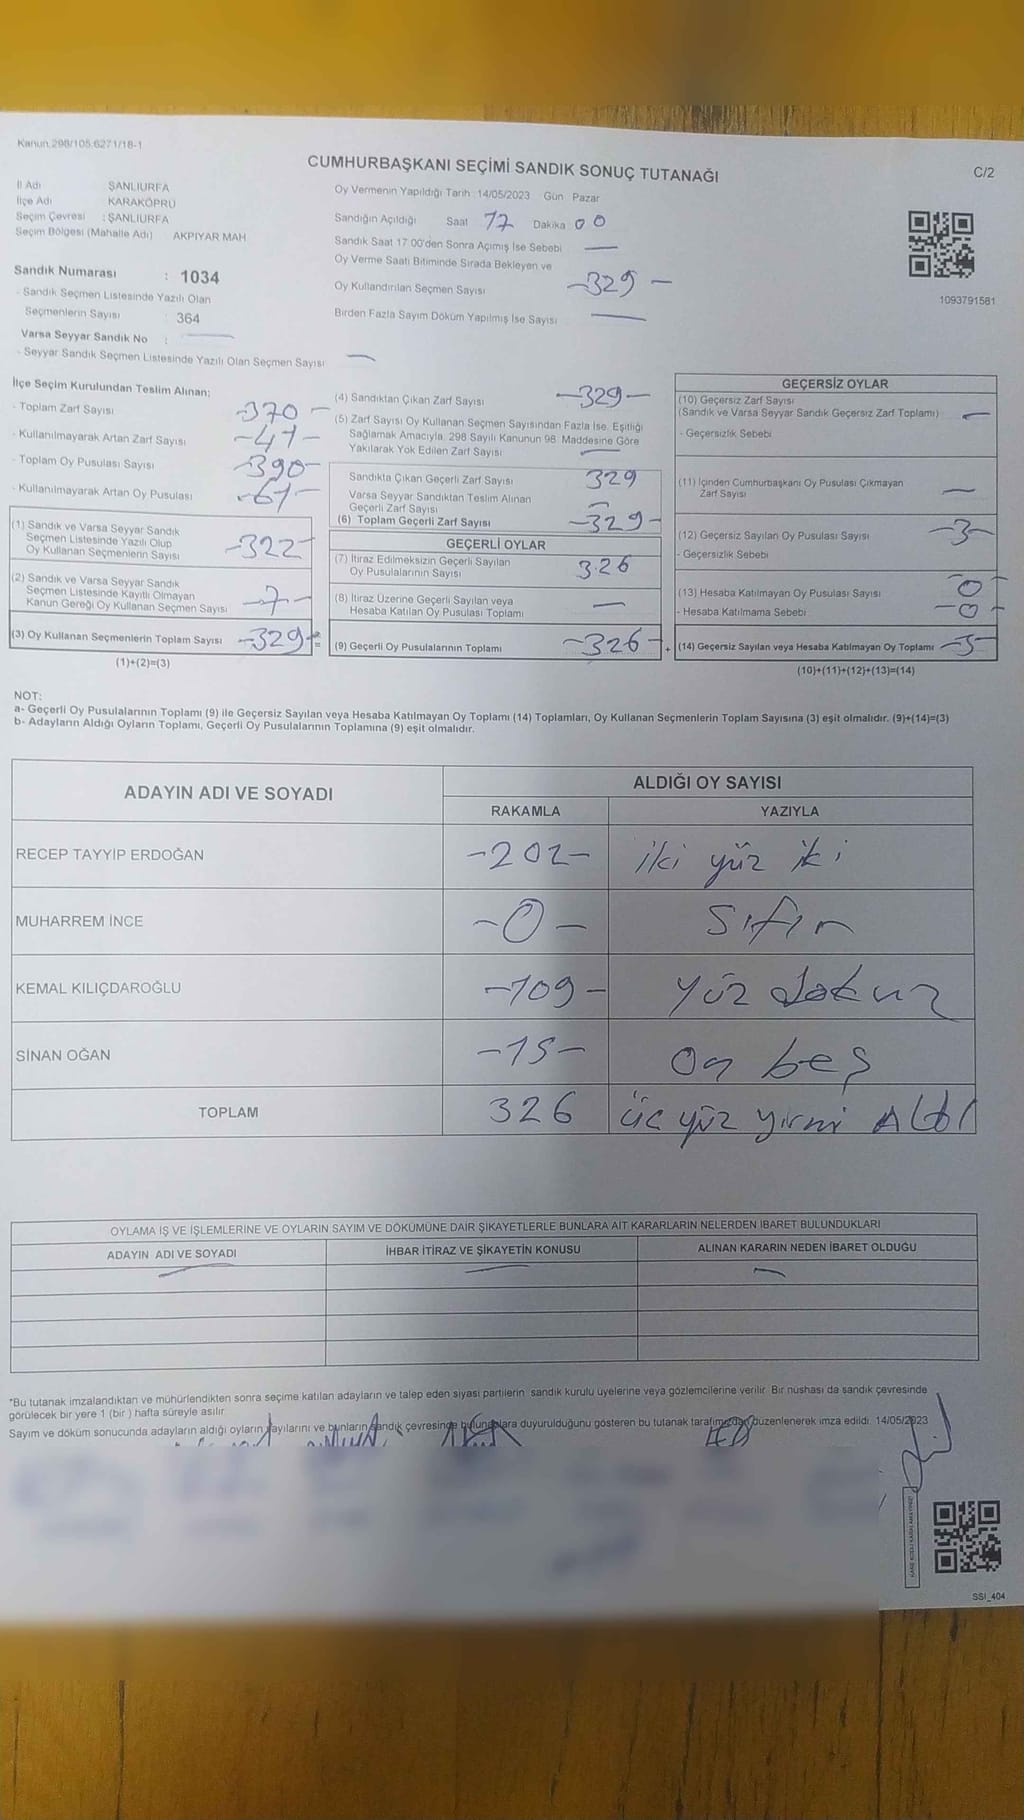 Kanun.298/105.6271/18-1
CUMHURBAŞKANI SEÇİMİ SANDIK SONUÇ TUTANAĞI
C/2
İl Adı : ŞANLIURFA
İlçe Adı : KARAKÖPRÜ
Seçim Çevresi : ŞANLIURFA
Seçim Bölgesi (Mahalle Adı) : AKPIYAR MAH
Oy Vermenin Yapıldığı Tarih : 14/05/2023 Gün : Pazar
Sandığın Açıldığı Saat 17 Dakika 00
Sandık Saat 17:00'den Sonra Açımış İse Sebebi —
Oy Verme Saati Bitiminde Sırada Bekleyen ve
Oy Kullandırılan Seçmen Sayısı -329-
Birden Fazla Sayım Döküm Yapılmış İse Sayısı —
1093791581
Sandık Numarası : 1034
- Sandık Seçmen Listesinde Yazılı Olan
Seçmenlerin Sayısı : 364
Varsa Seyyar Sandık No : —
- Seyyar Sandık Seçmen Listesinde Yazılı Olan Seçmen Sayısı : —
İlçe Seçim Kurulundan Teslim Alınan;
- Toplam Zarf Sayısı -370-
- Kullanılmayarak Artan Zarf Sayısı -41-
- Toplam Oy Pusulası Sayısı -390-
- Kullanılmayarak Artan Oy Pusulası -61-
(1) Sandık ve Varsa Seyyar Sandık
Seçmen Listesinde Yazılı Olup
Oy Kullanan Seçmenlerin Sayısı -322-
(2) Sandık ve Varsa Seyyar Sandık
Seçmen Listesinde Kayıtlı Olmayan
Kanun Gereği Oy Kullanan Seçmen Sayısı -7-
(3) Oy Kullanan Seçmenlerin Toplam Sayısı -329- =
(1)+(2)=(3)
(4) Sandıktan Çıkan Zarf Sayısı -329-
(5) Zarf Sayısı Oy Kullanan Seçmen Sayısından Fazla İse, Eşitliği
Sağlamak Amacıyla, 298 Sayılı Kanunun 98. Maddesine Göre
Yakılarak Yok Edilen Zarf Sayısı —
Sandıkta Çıkan Geçerli Zarf Sayısı 329
Varsa Seyyar Sandıktan Teslim Alınan
Geçerli Zarf Sayısı —
(6) Toplam Geçerli Zarf Sayısı -329-
GEÇERLİ OYLAR
(7) İtiraz Edilmeksizin Geçerli Sayılan
Oy Pusulalarının Sayısı 326
(8) İtiraz Üzerine Geçerli Sayılan veya
Hesaba Katılan Oy Pusulası Toplamı —
(9) Geçerli Oy Pusulalarının Toplamı -326- +
GEÇERSİZ OYLAR
(10) Geçersiz Zarf Sayısı
(Sandık ve Varsa Seyyar Sandık Geçersiz Zarf Toplamı) —
- Geçersizlik Sebebi
(11) İçinden Cumhurbaşkanı Oy Pusulası Çıkmayan
Zarf Sayısı —
(12) Geçersiz Sayılan Oy Pusulası Sayısı -3-
- Geçersizlik Sebebi
(13) Hesaba Katılmayan Oy Pusulası Sayısı -0-
- Hesaba Katılmama Sebebi -0-
(14) Geçersiz Sayılan veya Hesaba Katılmayan Oy Toplamı -3-
(10)+(11)+(12)+(13)=(14)
NOT:
a- Geçerli Oy Pusulalarının Toplamı (9) ile Geçersiz Sayılan veya Hesaba Katılmayan Oy Toplamı (14) Toplamları, Oy Kullanan Seçmenlerin Toplam Sayısına (3) eşit olmalıdır. (9)+(14)=(3)
b- Adayların Aldığı Oyların Toplamı, Geçerli Oy Pusulalarının Toplamına (9) eşit olmalıdır.
ADAYIN ADI VE SOYADI
ALDIĞI OY SAYISI
RAKAMLA YAZIYLA
RECEP TAYYİP ERDOĞAN -202- iki yüz iki
MUHARREM İNCE -0- Sıfır
KEMAL KILIÇDAROĞLU -109- Yüz dokuz
SİNAN OĞAN -15- On beş
TOPLAM 326 üç yüz yirmi Altı
OYLAMA İŞ VE İŞLEMLERİNE VE OYLARIN SAYIM VE DÖKÜMÜNE DAİR ŞİKAYETLERLE BUNLARA AİT KARARLARIN NELERDEN İBARET BULUNDUKLARI
ADAYIN ADI VE SOYADI İHBAR İTİRAZ VE ŞİKAYETİN KONUSU ALINAN KARARIN NEDEN İBARET OLDUĞU
— — —
*Bu tutanak imzalandıktan ve mühürlendikten sonra seçime katılan adayların ve talep eden siyasi partilerin sandık kurulu üyelerine veya gözlemcilerine verilir. Bir nüshası da sandık çevresinde
görülecek bir yere 1 (bir ) hafta süreyle asılır.
Sayım ve döküm sonucunda adayların aldığı oyların sayılarını ve bunların sandık çevresinde bulunanlara duyurulduğunu gösteren bu tutanak tarafımızdan düzenlenerek imza edildi. 14/05/2023
SSI_404